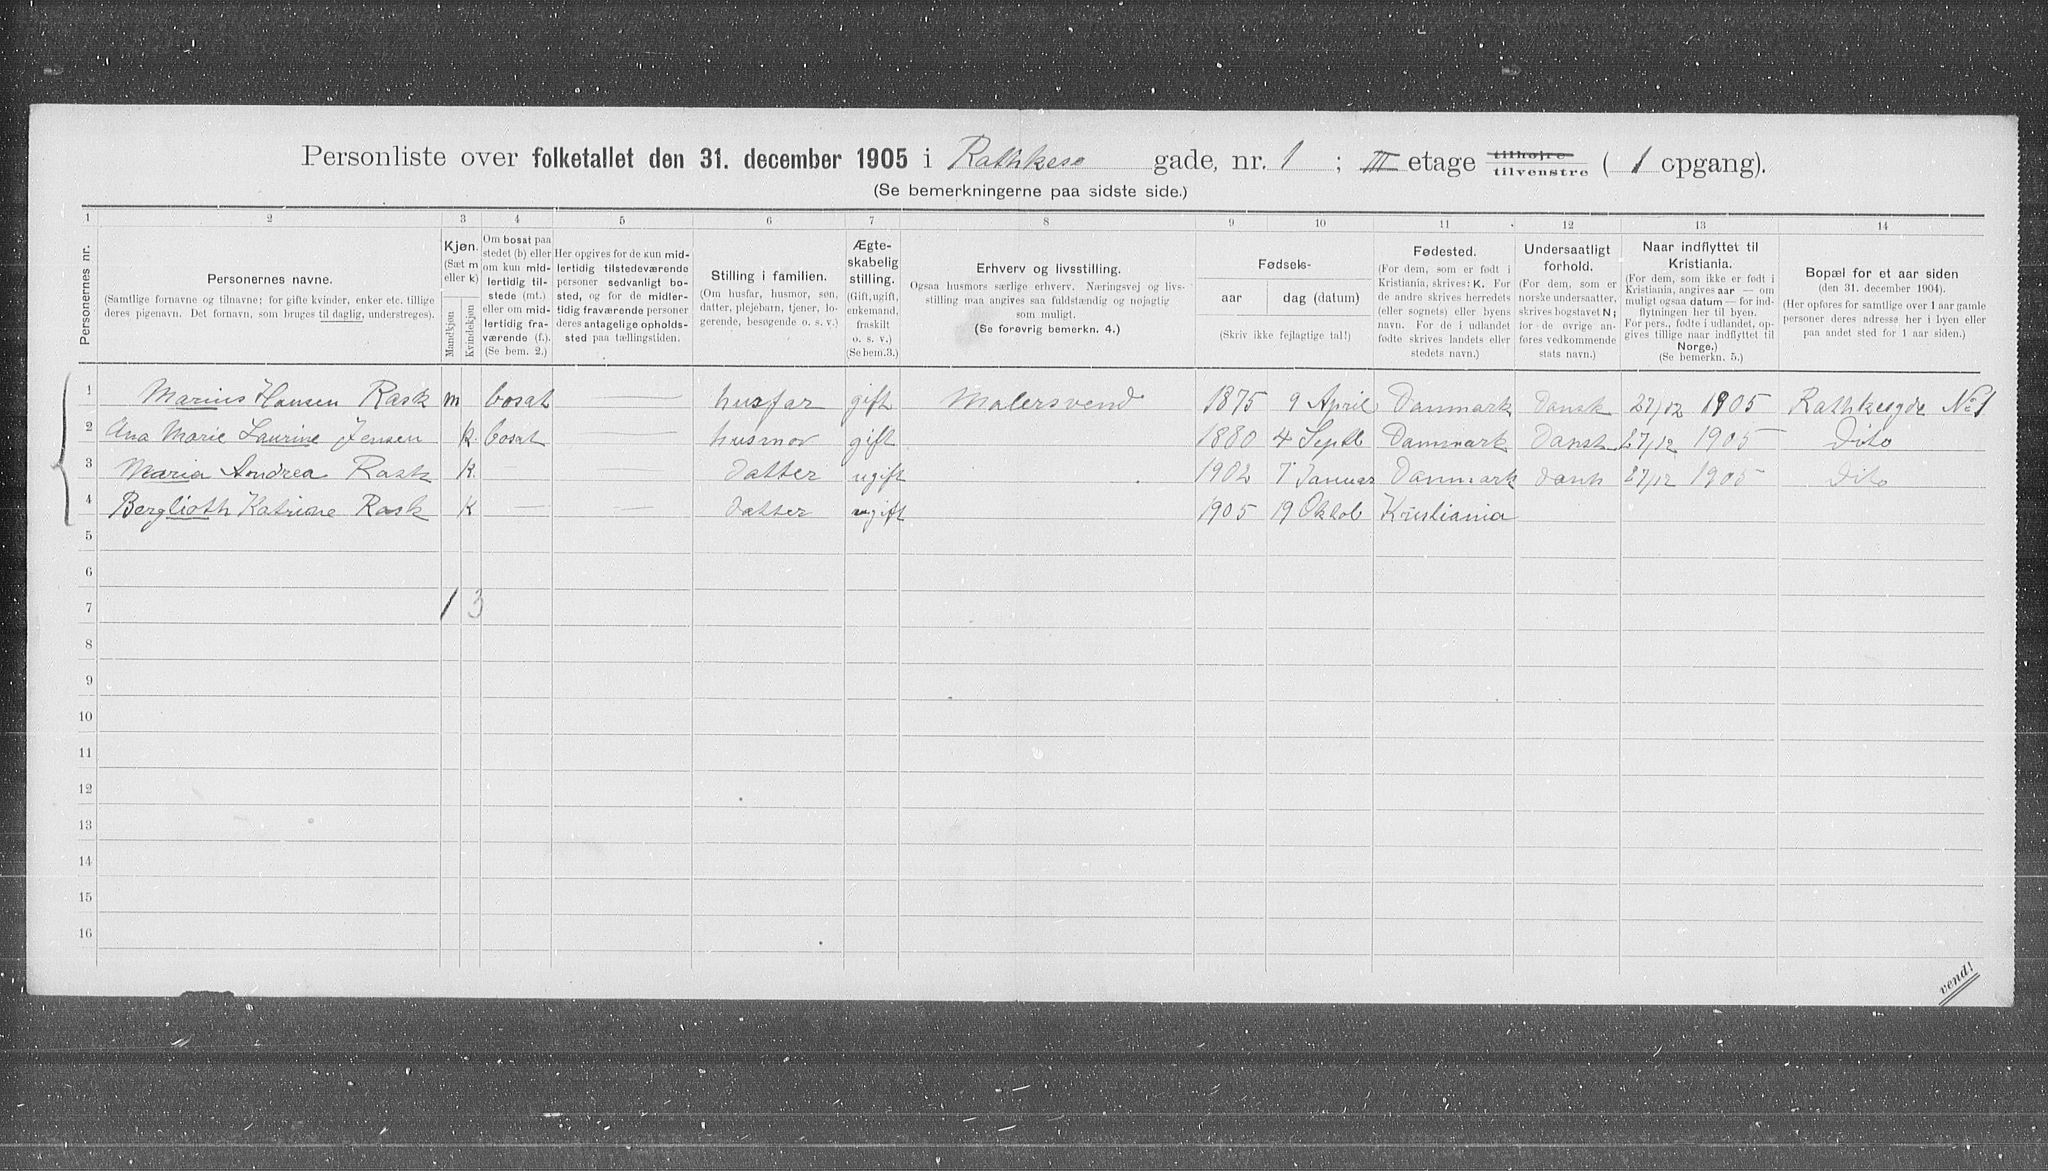 Personliste over folketallet den 31. december 1905 i Rathkeso gade, nr. 1 ; III etage tilhøjre tilvenstre ( 1 opgang).
(Se bemerkningerne paa sidste side.)
1 2 3 4 5 6 7 8 9 10 11 12 13 14
Personernes nr.
Personernes navne.
(Samtlige fornavne og tilnavne; for gifte kvinder, enker etc. tillige
deres pigenavn. Det fornavn, som bruges til daglig, understreges).
Kjøn.
(Sæt m
eller k)
Mandkjøn
Kvindekjøn
Om bosat paa
stedet (b) eller
om kun mid-
lertidig til-
stede (mt.)
eller om mid-
lertidig fra-
værende (f.).
(Se bem. 2.)
Her opgives for de kun mid-
lertidig tilstedeværende
personer sedvanligt bo-
sted, og for de midler-
tidig fraværende personer
deres antagelige opholds-
sted paa tællingstiden.
Stilling i familien.
(Om husfar, husmor, søn,
datter, plejebarn, tjener, lo-
gerende, besøgende o. s. v.)
Ægte-
skabelig
stilling.
(Gift, ugift,
enkemand,
fraskilt
o. s. v.)
(Se bem.3.)
Erhverv og livsstilling.
Ogsaa husmors særlige erhverv. Næringsvej og livs-
stilling maa angives saa fuldstændig og nøjagtig
som muligt.
(Se forøvrig bemerkn. 4.)
Fødsels-
aar dag (datum)
(Skriv ikke fejlagtige tal!)
Fødested.
(For dem, som er født i
Kristiania, skrives: K. For
de andre skrives herredets
(eller sognets) eller byens
navn. For de i udlandet
fødte skrives landets eller
stedets navn.)
Undersaatligt
forhold.
(For dem, som er
norske undersaatter,
skrives bogstavet N;
for de øvrige an-
føres vedkommende
stats navn.)
Naar indflyttet til
Kristiania.
(For dem, som ikke er født i
Kristiania, angives aar — om
muligt ogsaa datum — for ind-
flytningen her til byen.
For pers., fødte i udlandet, op-
gives tillige naar indflyttet til
Norge.)
(Se bemerkn. 5.)
Bopæl for et aar siden
(den 31. december 1904).
(Her opføres for samtlige over 1 aar gamle
personer deres adresse her i byen eller
paa andet sted for 1 aar siden.)
1 Marius Hansen Rask m bosat — husfar gift Malersvend 1875 9 April Danmark Dansk 27/12 1905 Rathkesgde No 1
2 Ana Marie Laurine Jensen K. bosat — husmor gift 1880 4 Septb Danmark Dansk 27/12 1905 Dito
3 Maria Andrea Rask K. — — Datter ugift 1902 7 Januar Danmark Dansk 27/12 1905 Dito
4 Berglioth Katrine Rask K — — Datter ugift 1905 19 Oktob Kristiania
5
6
7 1 3
8
9
10
11
12
13
14
15
16
vend!